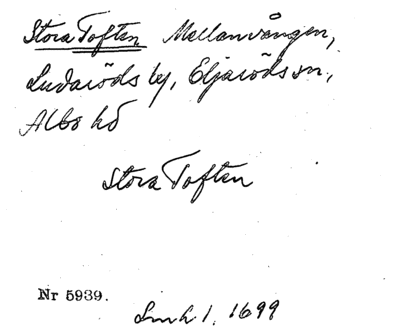 Stora Toften Mellanvången,
Ludaröds by, Eljaröds sn,
Albo hd
Stora Toften
Nr 5939.
Lmh 1. 1699